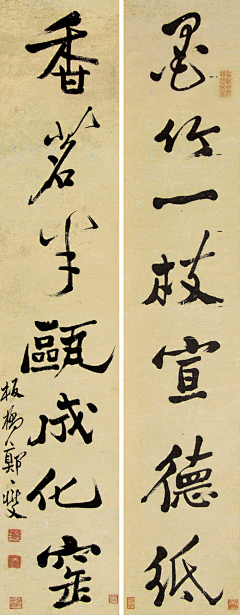 墨竹一枝宣德纸
香茗半瓯成化窑
板桥郑燮